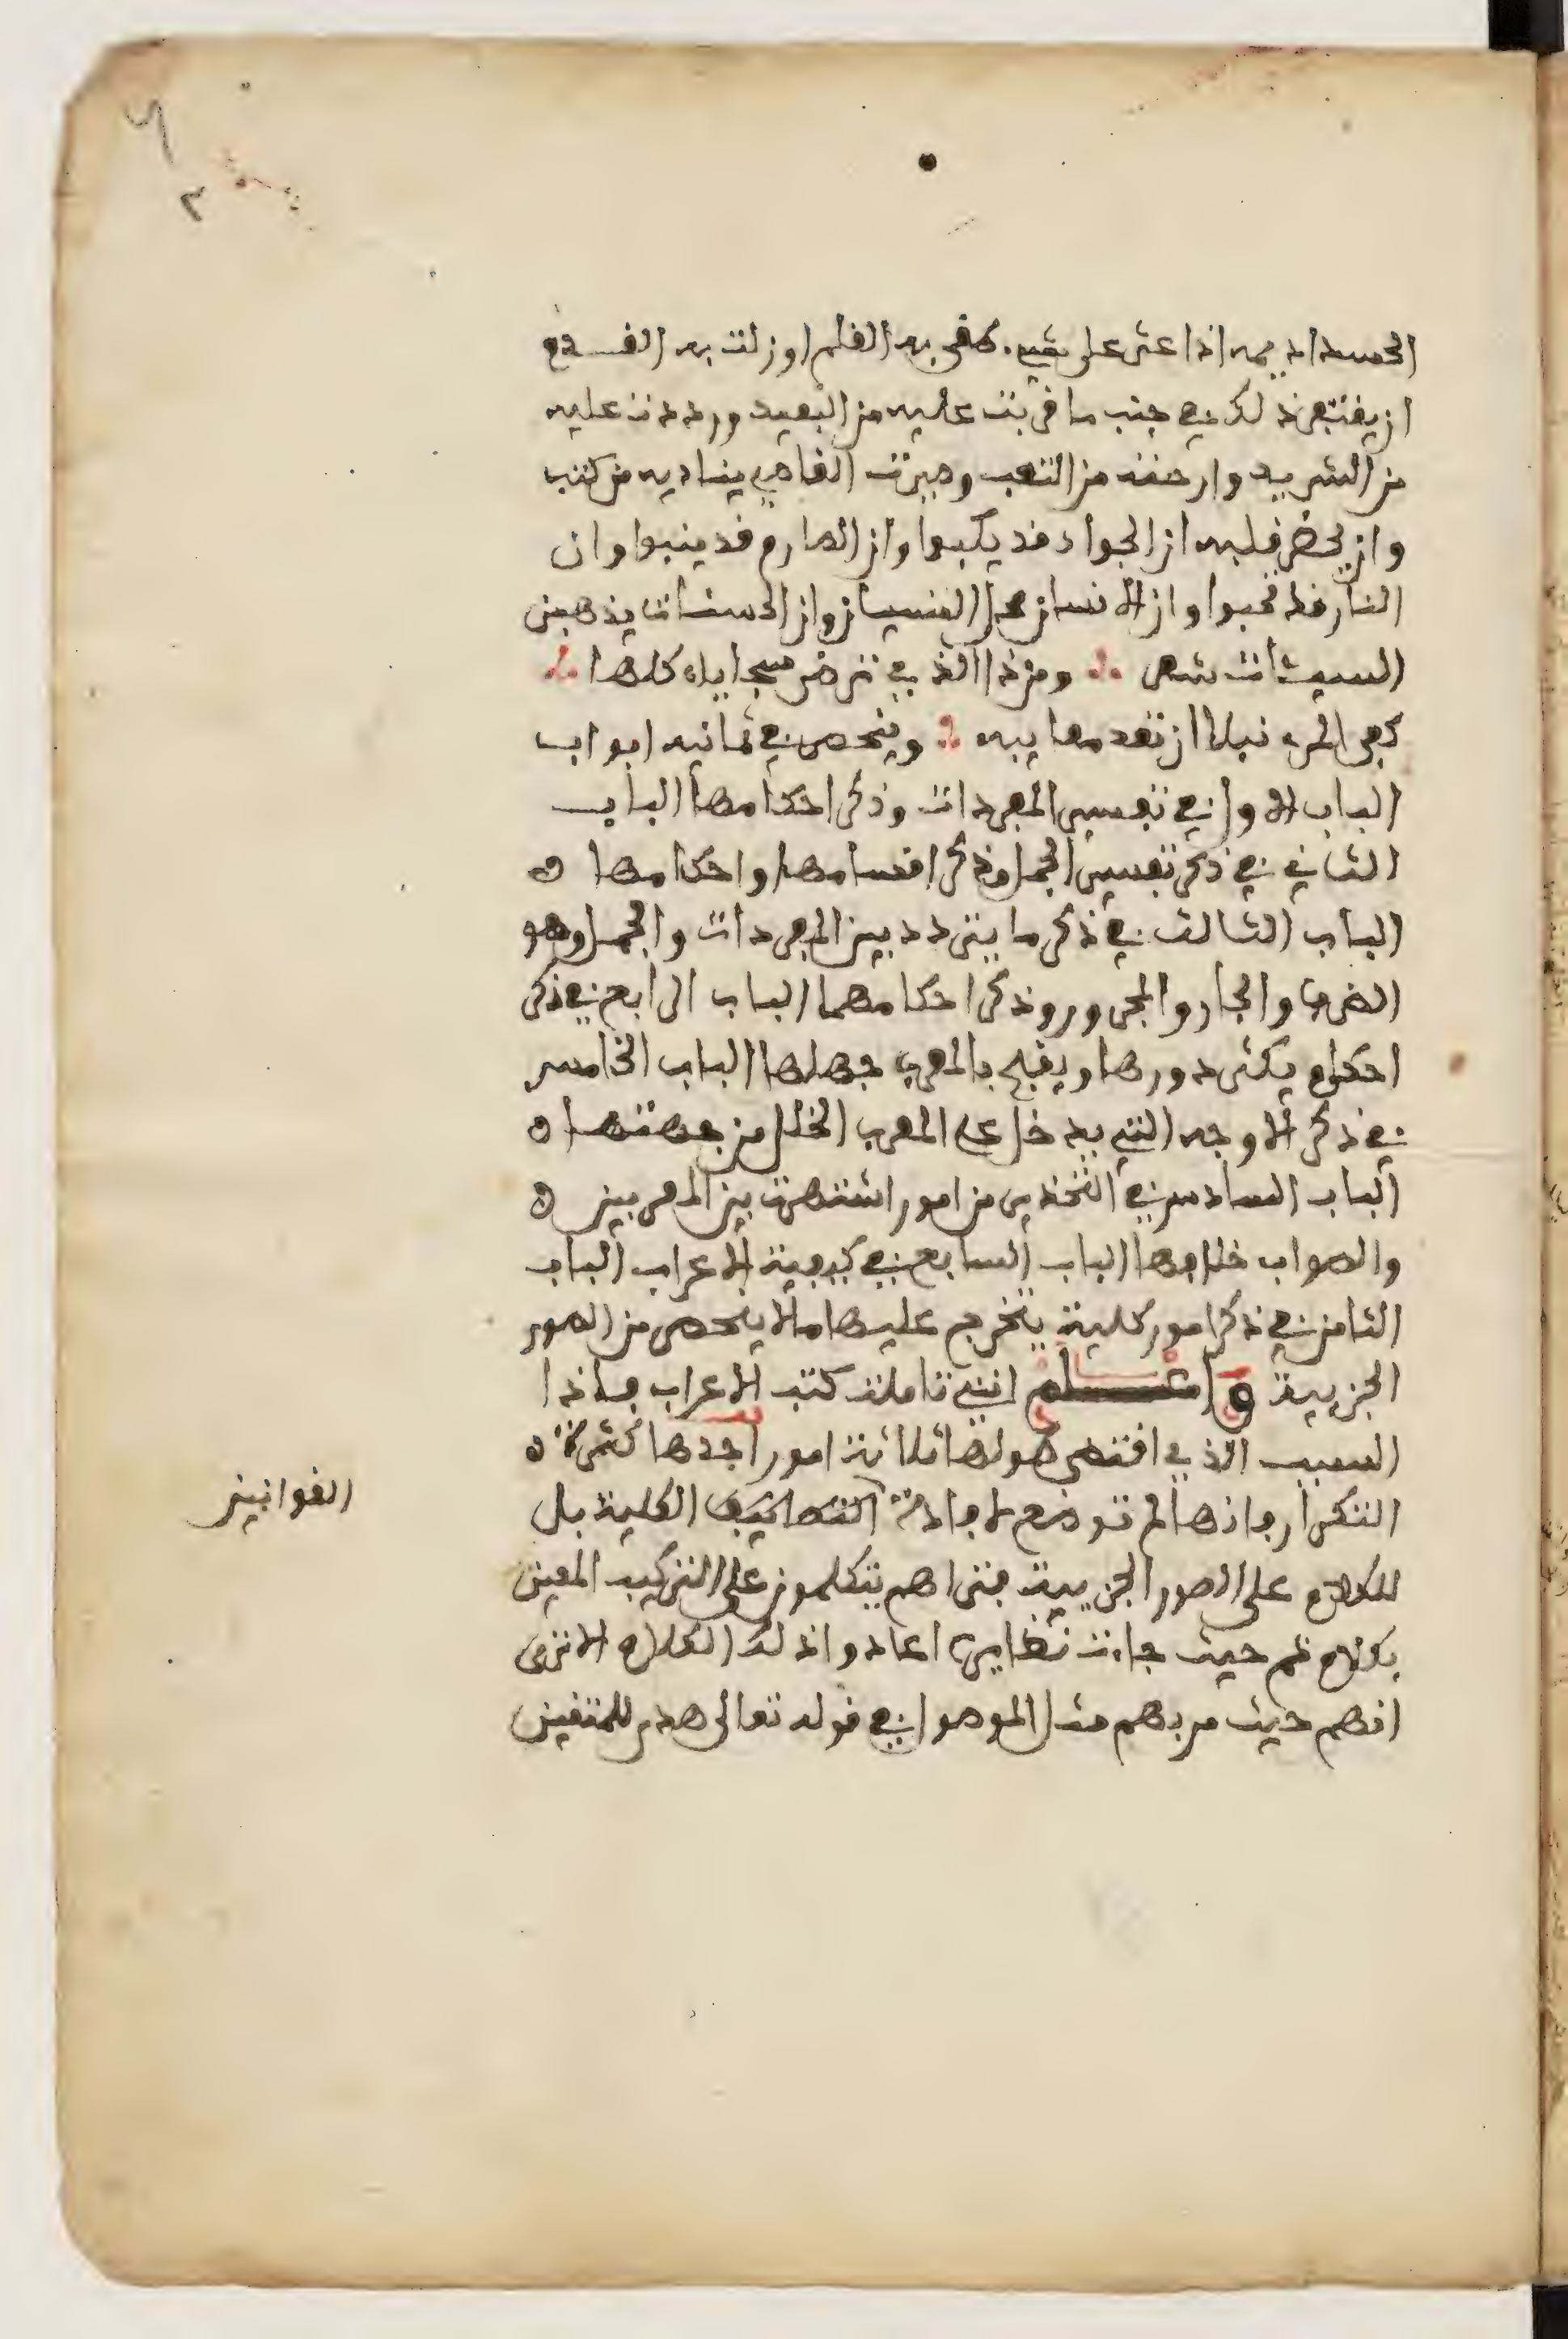 الحسد اديمه اذا عثر على شيء طغى به القلم او زلت به القدم
ان يغتفر ذلك في جنب ما قربت عليه من البعيد ورددت عليه
من الشريد وارحته من التعب وصيرت القاصي يناديه من كثب
وان يحضر قلبه ان الجواد قد يكبوا وان الصارم قد ينبوا وان
النار قد تخبوا وان الانسان محل النسيان وان الحسنات يذهبن
السيئات شعر ومن ذا الذي ترضى سجاياه كلها
كفى المرء نبلا ان تعد معايبه وينحصر في ثمانيه ابواب
الباب الاول في تفسير المفردات وذكر احكامها الباب
الثاني في ذكر تفسير الجمل وذكر اقسامها واحكامها ه
الباب الثالث في ذكر ما يتردد بين المفردات والجمل وهو
الظرف والجار والمجرور وذكر احكامهما الباب الرابع في ذكر
احكام يكثر دورها ويقبح بالمعرب جهلها الباب الخامس
في ذكر الاوجه التي يدخل على المعرب الخلل من جهتها ه
الباب السادس في التحذير من امور اشتهرت بين المعربين ه
والصواب خلافها الباب السابع في كيفية الاعراب الباب
الثامن في ذكر امور كلية يتخرج عليها ما لا ينحصر من الصور
الجزيية واعلم انني تاملت كتب الاعراب فاذا
السبب الذي اقتضى طولها ثلاثة امور احدها كثرة ه
التكرار فانها لم توضع لافادة الكلية بل
القوانين
للكلام على الصور الجزيية فتراهم يتكلمون على التركيب المعين
بكلام ثم حيث جاءت نظايره اعادوا ذلك الكلام الا ترى
انهم حيث مر بهم مثل الموصول في قوله تعالى هدى للمتقين